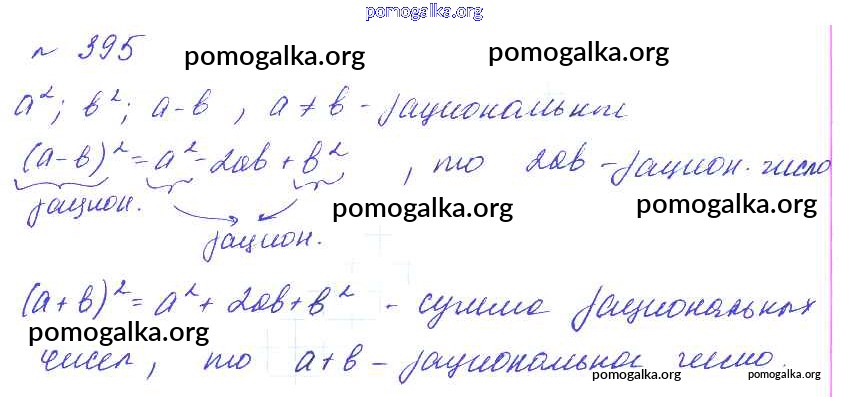 pomogalka.org
№ 395 pomogalka.org pomogalka.org
a²; b²; a-b, a≠b - рациональные
(a-b)² = a² - 2ab + b², то 2ab - рацион. число
рацион. pomogalka.org pomogalka.org
рацион.
(a+b)² = a² + 2ab + b² - сумма рациональных
pomogalka.org
чисел, то a+b - рациональное число.
pomogalka.org pomogalka.org